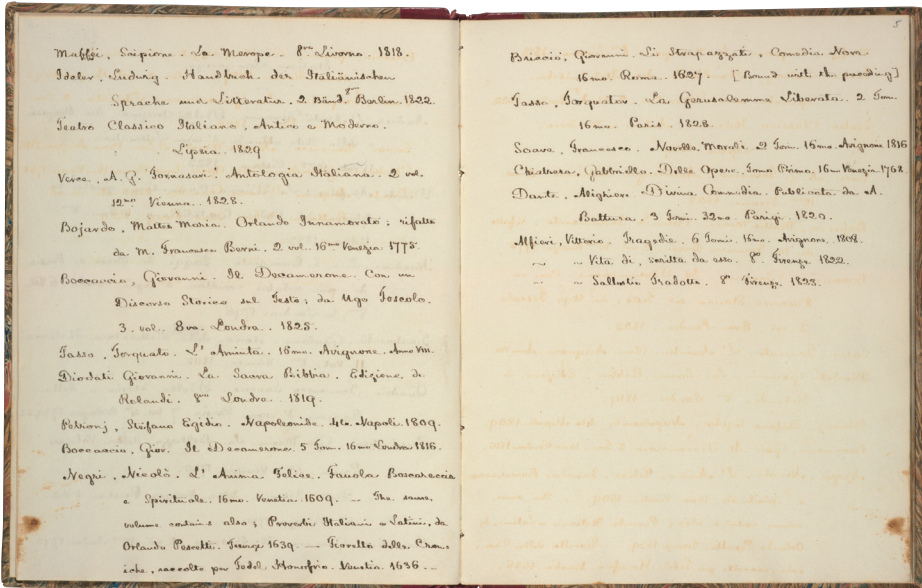 Maffei, Scipione. La Merope. 8vo Livorno. 1818.
Ideler, Ludwig. Handbuch der Italiänischen
Sprache und Litteratur. 2 Bänd. 8vo Berlin. 1822.
Teatro Classico Italiano, Antico e Moderno.
Lipsia. 1829
Verce, A. G. Fornasari. Antologia Italiana. 2 vol.
12mo Vienna. 1828.
Bojardo, Matteo Maria. Orlando Innamorato; rifatto
da M. Francesco Berni. 2 vol. 16mo Venezia 1775.
Boccaccio, Giovanni. Il Decamerone. Con un
Discorso Storico sul Testo; da Ugo Foscolo.
3. vol. 8vo. Londra. 1825.
Tasso, Torquato. L' Aminta. 16mo. Avignone. Anno VIII.
Diodati Giovanni. La Sacra Bibbia. Edizione di
Rolandi. 8vo Londra. 1819.
Petronj, Stefano Egidio. Napoleonide. 4to. Napoli. 1809.
Boccaccio, Giov. Il Decamerone. 5 Tom. 16mo Londra 1816.
Negri, Nicolò. L' Anima Felice. Fauola Boscareccia
e Spirituale. 16mo. Venetia. 1609. — The same
volume contains also; Proverbi Italiani e Latini, da
Orlando Pescetti. Trevigi 1639. — Fioretto delle Cron-
iche, raccolto per Fedel Honofrio. Venetia. 1636. —
5
Briccio, Giovanni. Li Strapazzati, Comedia Nova
16mo. Roma. 1627. [Bound with the preceding]
Tasso, Torquato. La Gerusalemme Liberata. 2 Tom.
16mo. Paris. 1828.
Soave, Francesco. Novelle Morali. 2 Tom. 16mo. Avignone 1816
Chiabrera, Gabbriello. Delle Opere. Tomo Primo. 16mo Venezia. 1768.
Dante, Alighieri. Divina Commedia. Publicata da A.
Buttura. 3 Tomi. 32mo. Parigi. 1820.
Alfieri, Vittorio. Tragedie. 6 Tomi. 16mo. Avignone. 1808.
" " Vita di, scritta da esso. 8vo Firenze. 1822.
" " Sallustio Tradotto. 8vo Firenze. 1823.